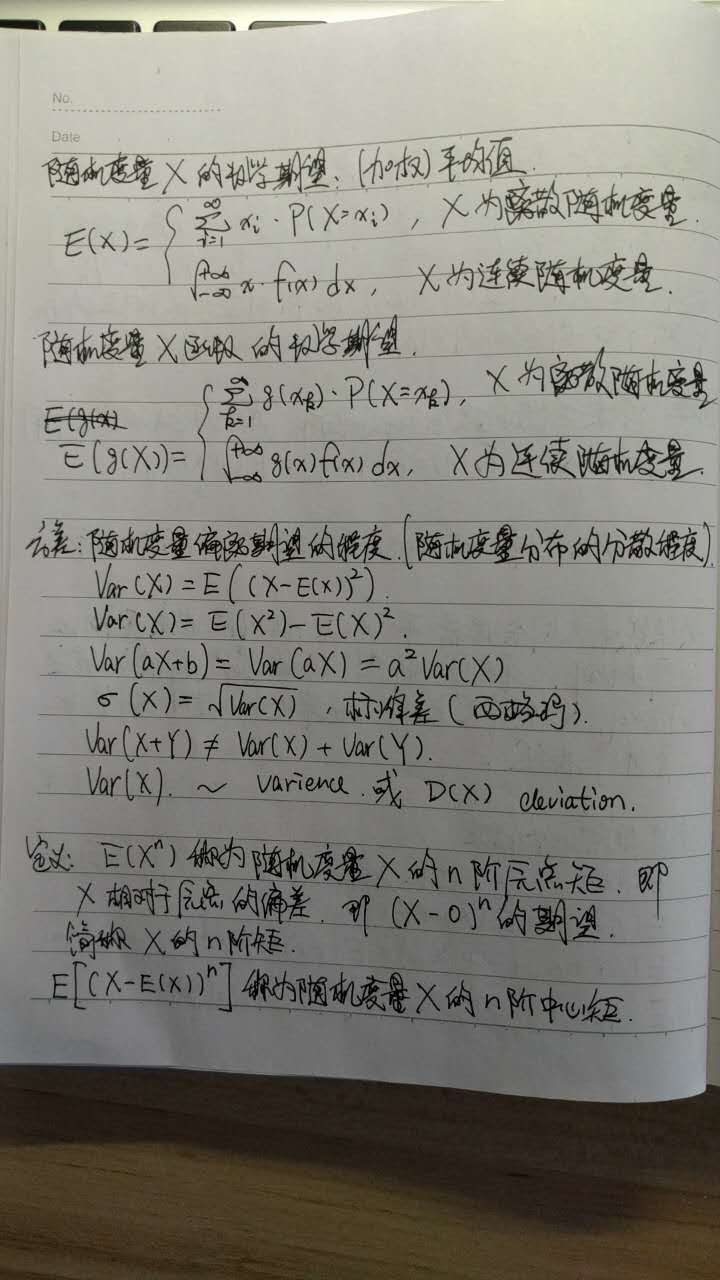 No.
Date
随机变量 X 的数学期望:(加权)平均值.
E(X) = { ∑_{i=1}^{∞} x_i · P(X=x_i) , X 为离散随机变量.
∫_{-∞}^{+∞} x · f(x) dx , X 为连续随机变量.
随机变量 X 函数 的 数学期望.
E(g(x)
∑_{k=1}^{∞} g(x_k) · P(X=x_k), X 为离散随机变量
E(g(X)) = { ∫_{-∞}^{+∞} g(x) f(x) dx, X 为连续随机变量.
方差: 随机变量偏离期望的程度.(随机变量分布的分散程度).
Var(X) = E((X-E(X))²).
Var(X) = E(X²) - E(X)².
Var(aX+b) = Var(aX) = a² Var(X)
σ(X) = √Var(X) , 标准差 (西格玛).
Var(X+Y) ≠ Var(X) + Var(Y).
Var(X). ~ varience 或 D(X) deviation.
定义: E(Xⁿ) 称为随机变量 X 的 n 阶原点矩. 即
X 相对于原点的偏差. 即 (X-0)ⁿ 的期望.
简称 X 的 n 阶矩.
E[(X-E(X))ⁿ] 称为随机变量 X 的 n 阶中心矩.